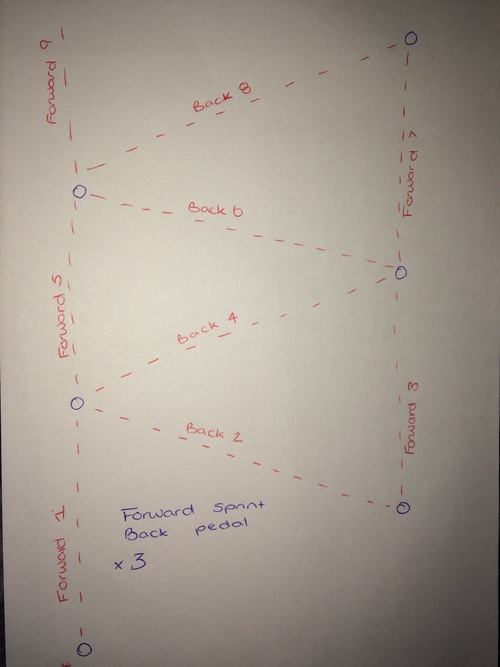 Forward 9
Back 8
Forward 7
Back 6
Forward 5
Back 4
Forward 3
Back 2
Forward 1
Forward Sprint
Back pedal
x 3